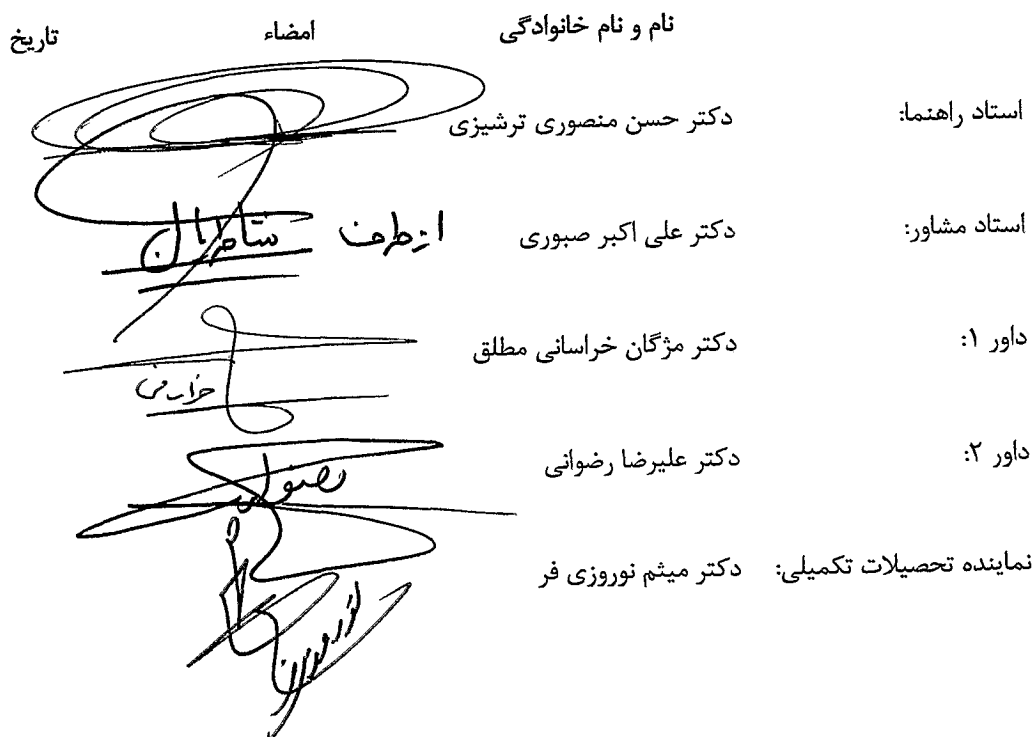 نام و نام خانوادگی امضاء تاریخ
استاد راهنما: دکتر حسن منصوری ترشیزی
استاد مشاور: دکتر علی اکبر صبوری از طرف
داور ۱: دکتر مژگان خراسانی مطلق
داور ۲: دکتر علیرضا رضوانی
رضوانی
نماینده تحصیلات تکمیلی: دکتر میثم نوروزی فر